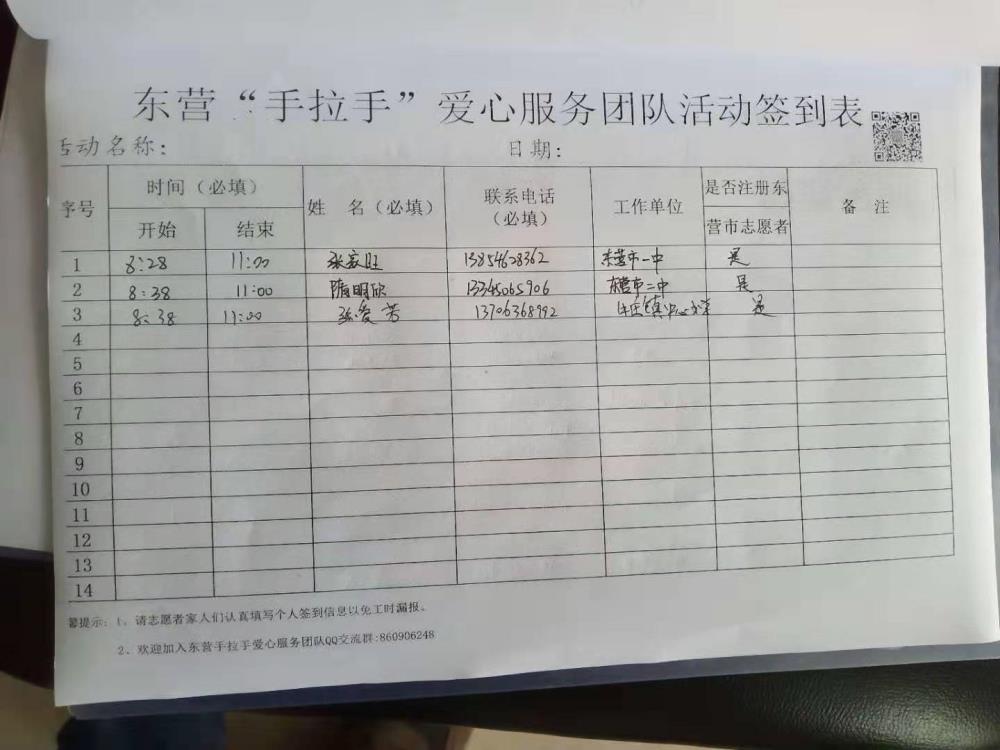 东营“手拉手”爱心服务团队活动签到表
活动名称： 日期：
序号 时间（必填） 姓 名（必填） 联系电话（必填） 工作单位 是否注册东营市志愿者 备 注
开始 结束
1 8:28 11:00 张家旺 13854628362 东营市一中 是
2 8:38 11:00 隋明欣 13345065906 东营市二中 是
3 8:38 11:00 张爱芳 13706368992 牛庄镇中心小学 是
4
5
6
7
8
9
10
11
12
13
14
馨提示：1、请志愿者家人们认真填写个人签到信息以免工时漏报。
2、欢迎加入东营手拉手爱心服务团队QQ交流群:860906248